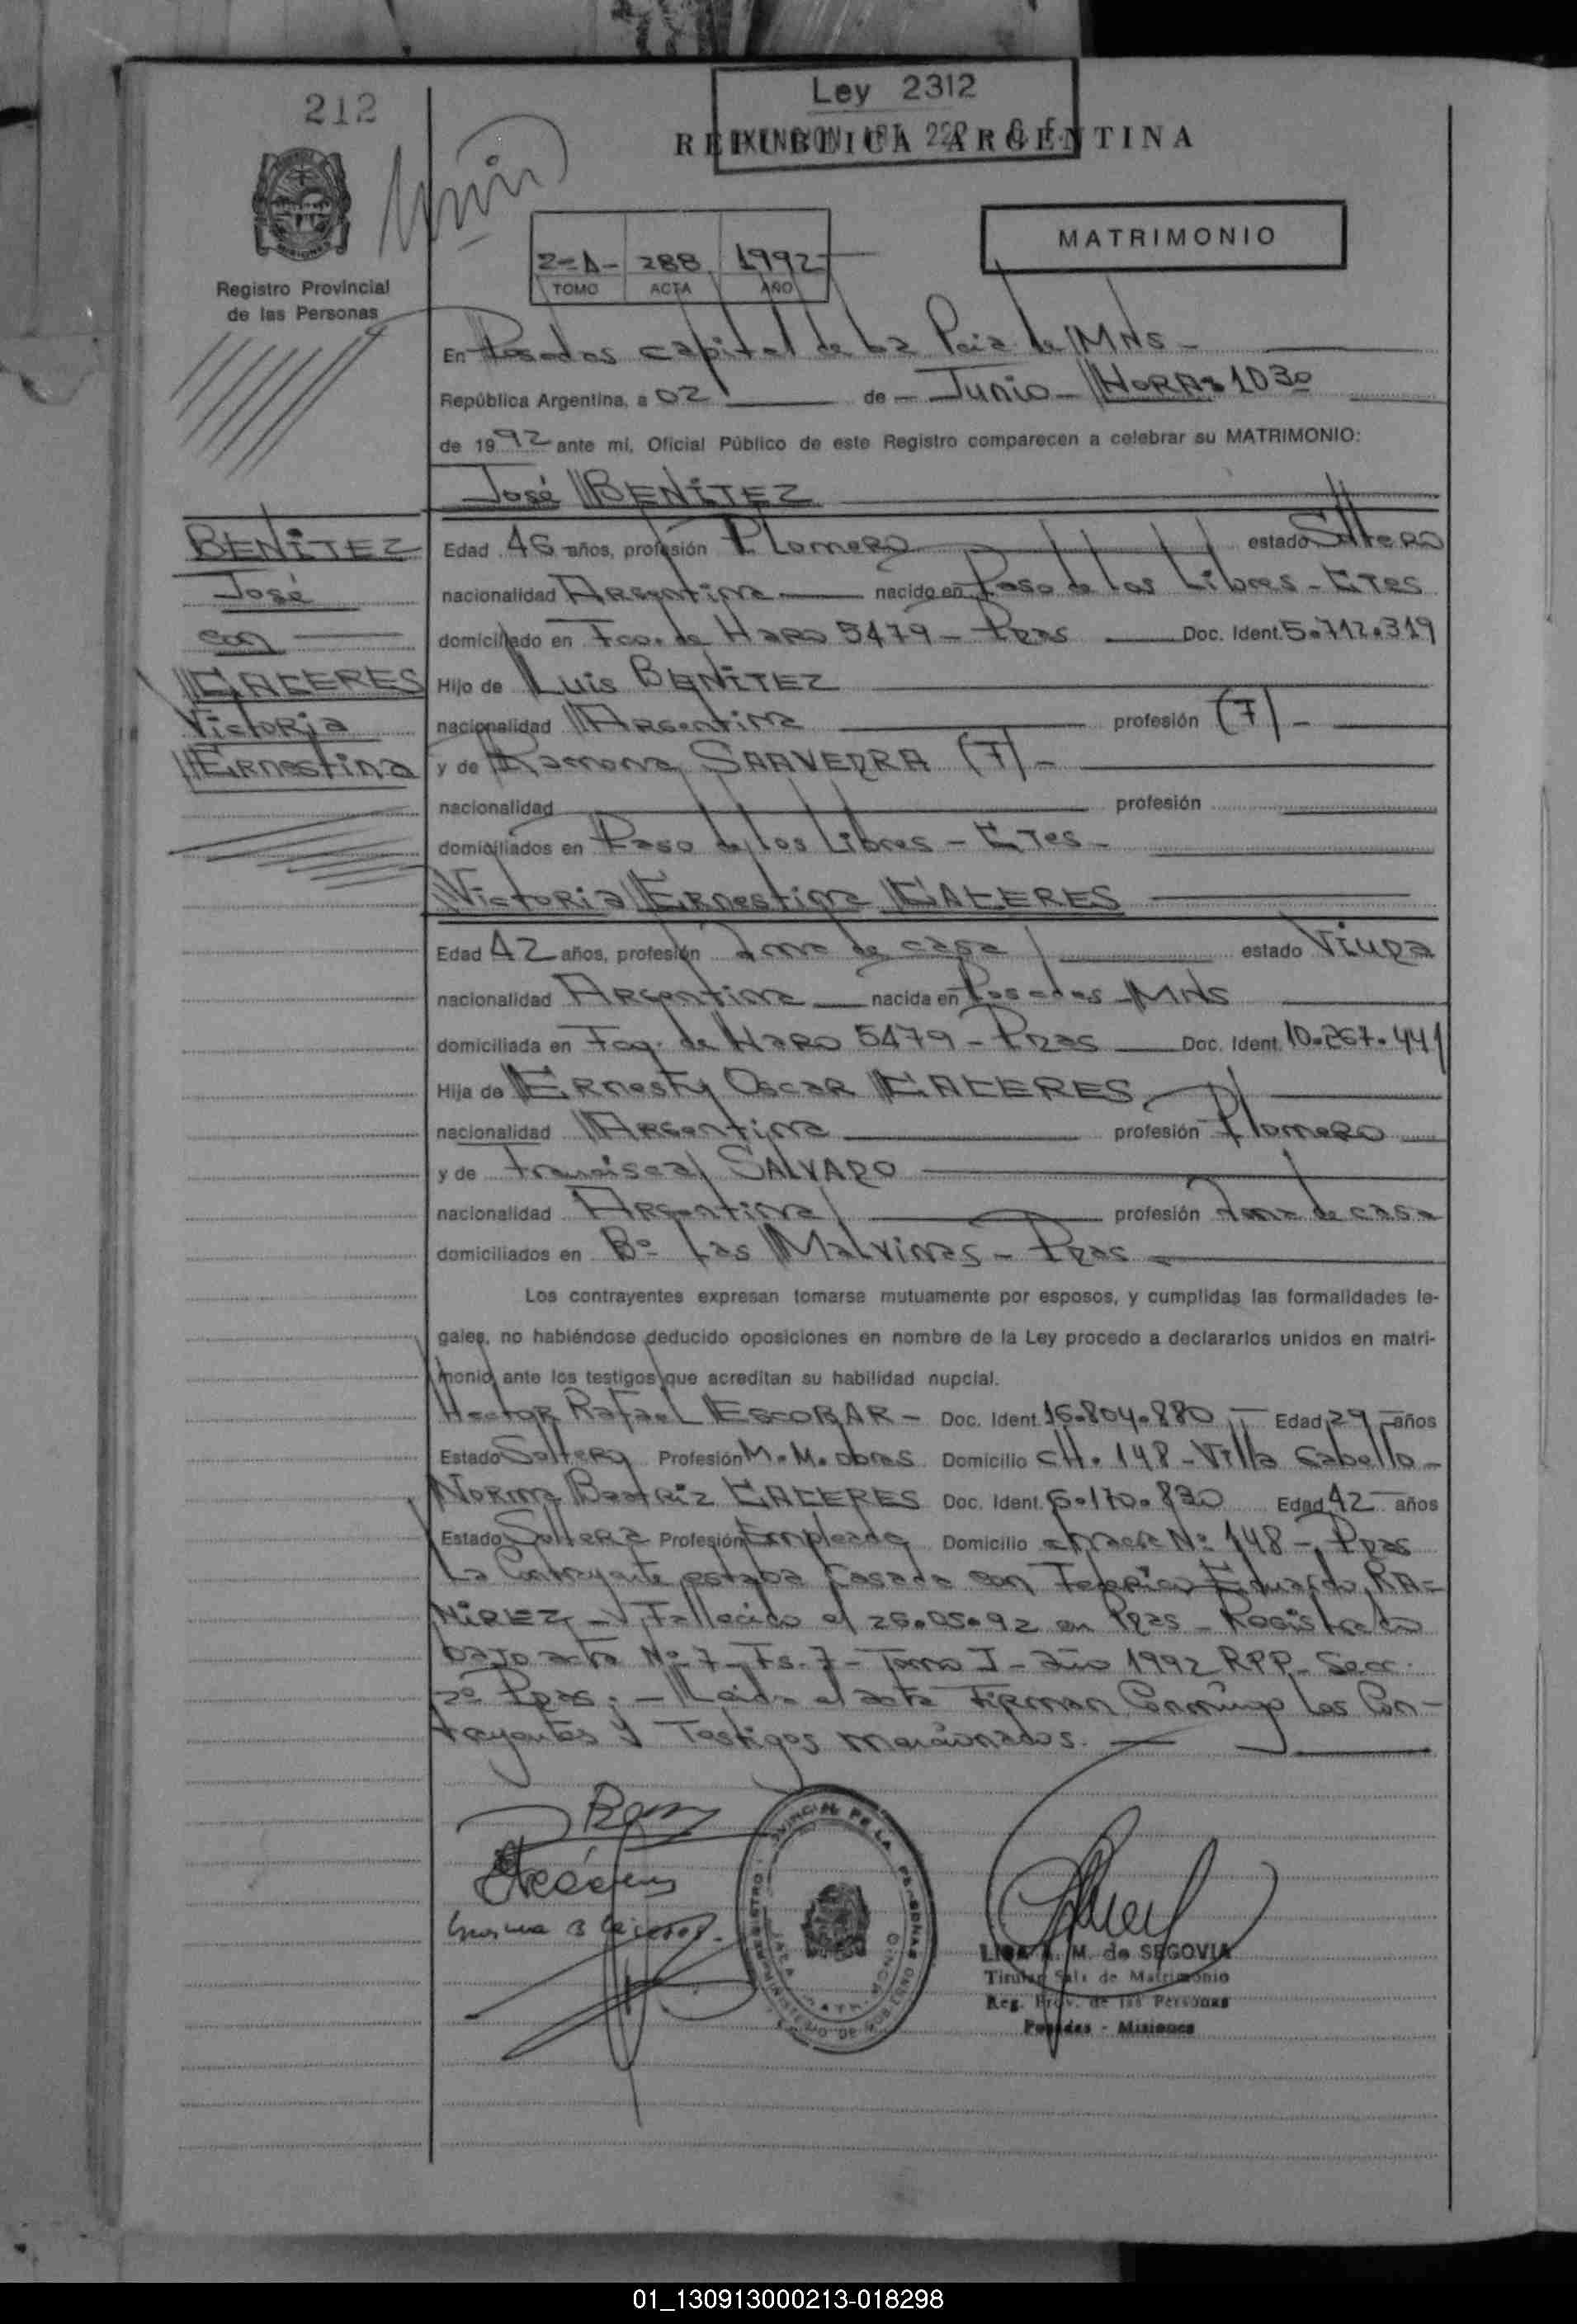 212
Ley 2312
REPUBLICA ARGENTINA
MATRIMONIO
2-A- 288 1992
TOMO ACTA AÑO
Registro Provincial
de las Personas
En Posadas capital de La Pcia de MNS -
República Argentina, a 02 de - Junio - HORAS 1030
de 1992 ante mi, Oficial Público de este Registro comparecen a celebrar su MATRIMONIO:
José BENÍTEZ
BENÍTEZ
José
con
CACERES
Victoria
Ernestina
Edad 46 años, profesión Plomero estado Soltero
nacionalidad Argentina nacido en Paso de los Libres - CTES
domiciliado en Fco. de Haro 5479 - Pdas Doc. Ident. 5.712.319
Hijo de Luis BENÍTEZ
nacionalidad Argentina profesión (F) -
y de Ramona SAAVEDRA (F) -
nacionalidad profesión
domiciliados en Paso de los Libres - CTes -
Victoria Ernestina CACERES
Edad 42 años, profesión ama de casa estado Viuda
nacionalidad Argentina nacida en Posadas - MNS
domiciliada en Fco. de Haro 5479 - Pdas Doc. Ident. 10.267.441
Hija de Ernesto Oscar CACERES
nacionalidad Argentina profesión Plomero
y de Francisca SALVADO
nacionalidad Argentina profesión Ama de casa
domiciliados en Bº Las Malvinas - Pdas
Los contrayentes expresan tomarse mutuamente por esposos, y cumplidas las formalidades le-
gales, no habiéndose deducido oposiciones en nombre de la Ley procedo a declararlos unidos en matri-
monio ante los testigos que acreditan su habilidad nupcial.
Hector Rafael ESCOBAR - Doc. Ident. 16.804.880 Edad 29 años
Estado Soltero Profesión M.M. obras Domicilio CH. 148 - Villa Cabello -
Norma Beatriz CACERES Doc. Ident. 6.170.830 Edad 42 años
Estado Soltera Profesión Empleada Domicilio chacra Nº 148 - Pdas
La Contrayente estaba Casada con Federico Eduardo RA-
MIREZ - Fallecido el 26.05.92 en Pdas - Registrado
bajo acta Nº 7 - Fs. 7 - Tomo I - año 1992 RPP. Secc.
2º Pdas. - Leída el acta Firman Conmigo los Con-
trayentes y Testigos mencionados.
M. de SEGOVIA
Titular Sala de Matrimonio
Reg. Prov. de las Personas
Posadas - Misiones
01_130913000213-018298